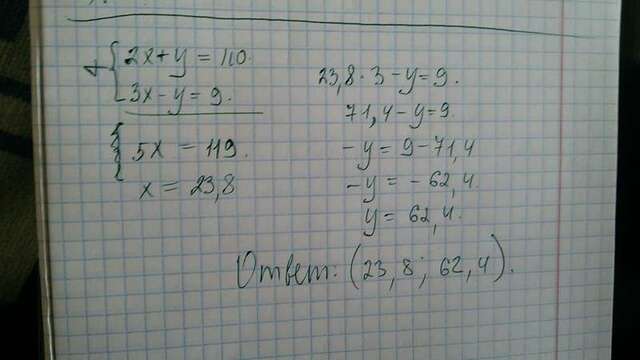 {2x + y = 110.
+ {3x - y = 9.
{5x = 119.
x = 23,8
23,8 · 3 - y = 9.
71,4 - y = 9
-y = 9 - 71,4
-y = -62,4
y = 62,4.
Ответ: (23,8; 62,4).